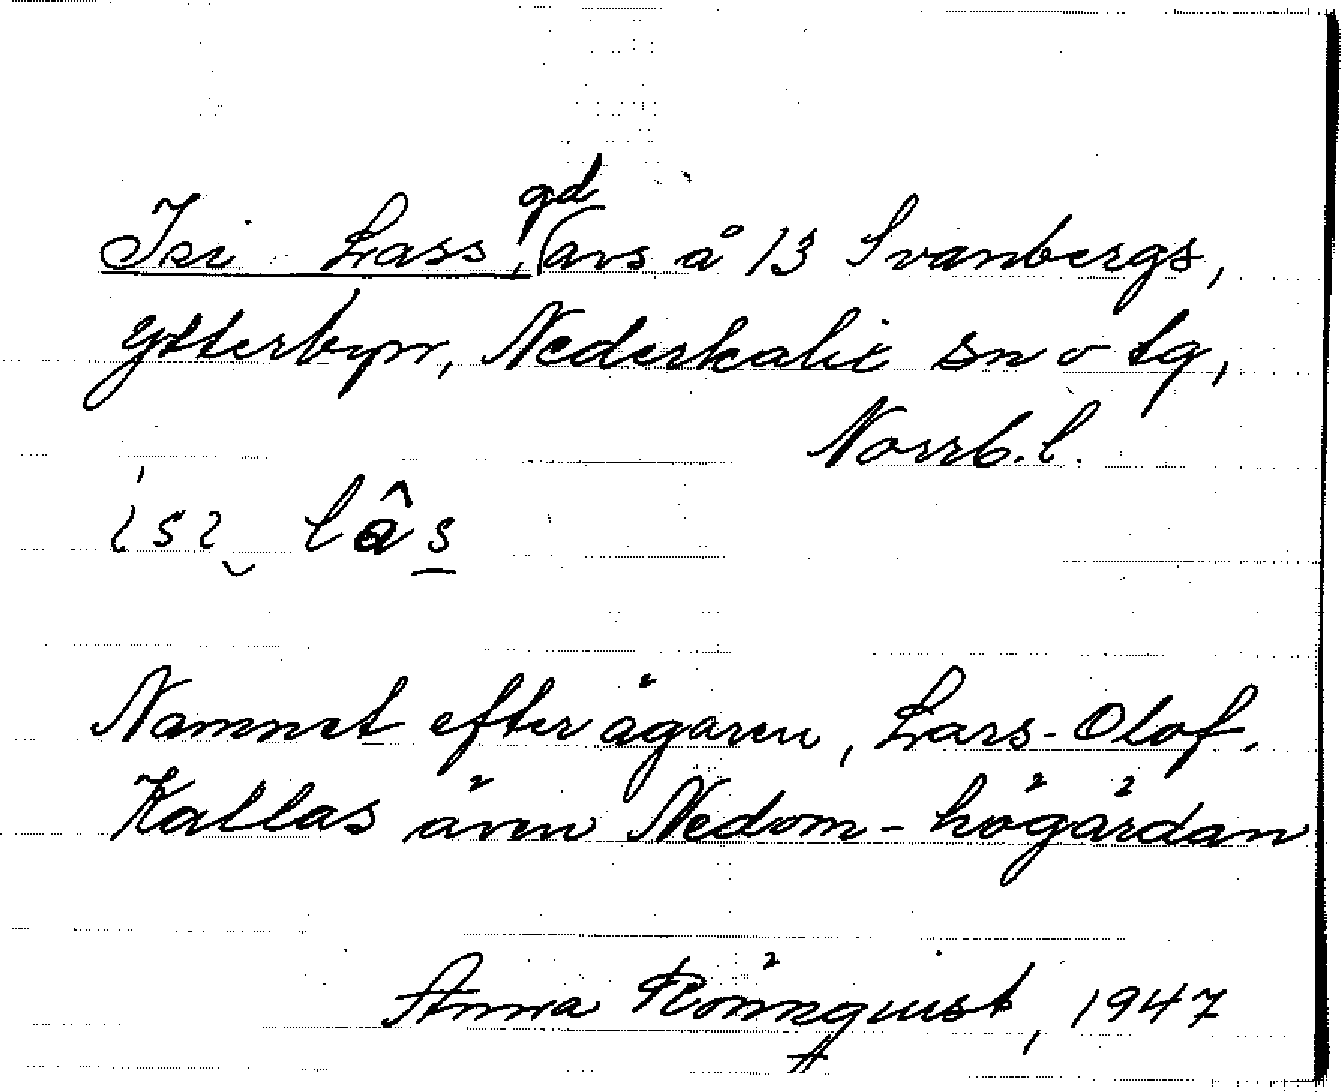 Isi Lass, gd (avs å 13 Svanbergs,
Ytterbyn, Nederkalix sn o tg,
Norrb.l.
ısı lâs
Namnet efter ägaren, Lars-Olof.
Kallas även Nedom-högårdan
Anna Rönnquist, 1947